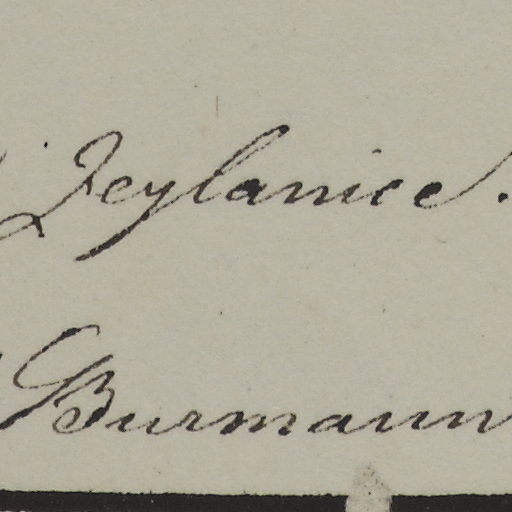 Zeylanice.
Burmann